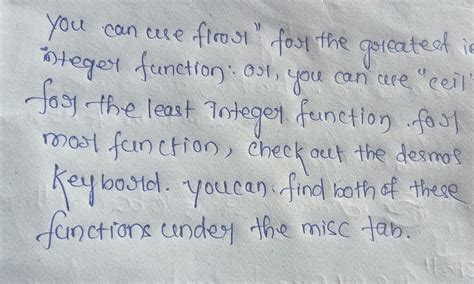 you can use floor" for the greatest i
integer function. or, you can use "ceil
for the least Integer function. for
moor function, check out the desmos
Keyboard. you can find both of these
functions under the misc tab.